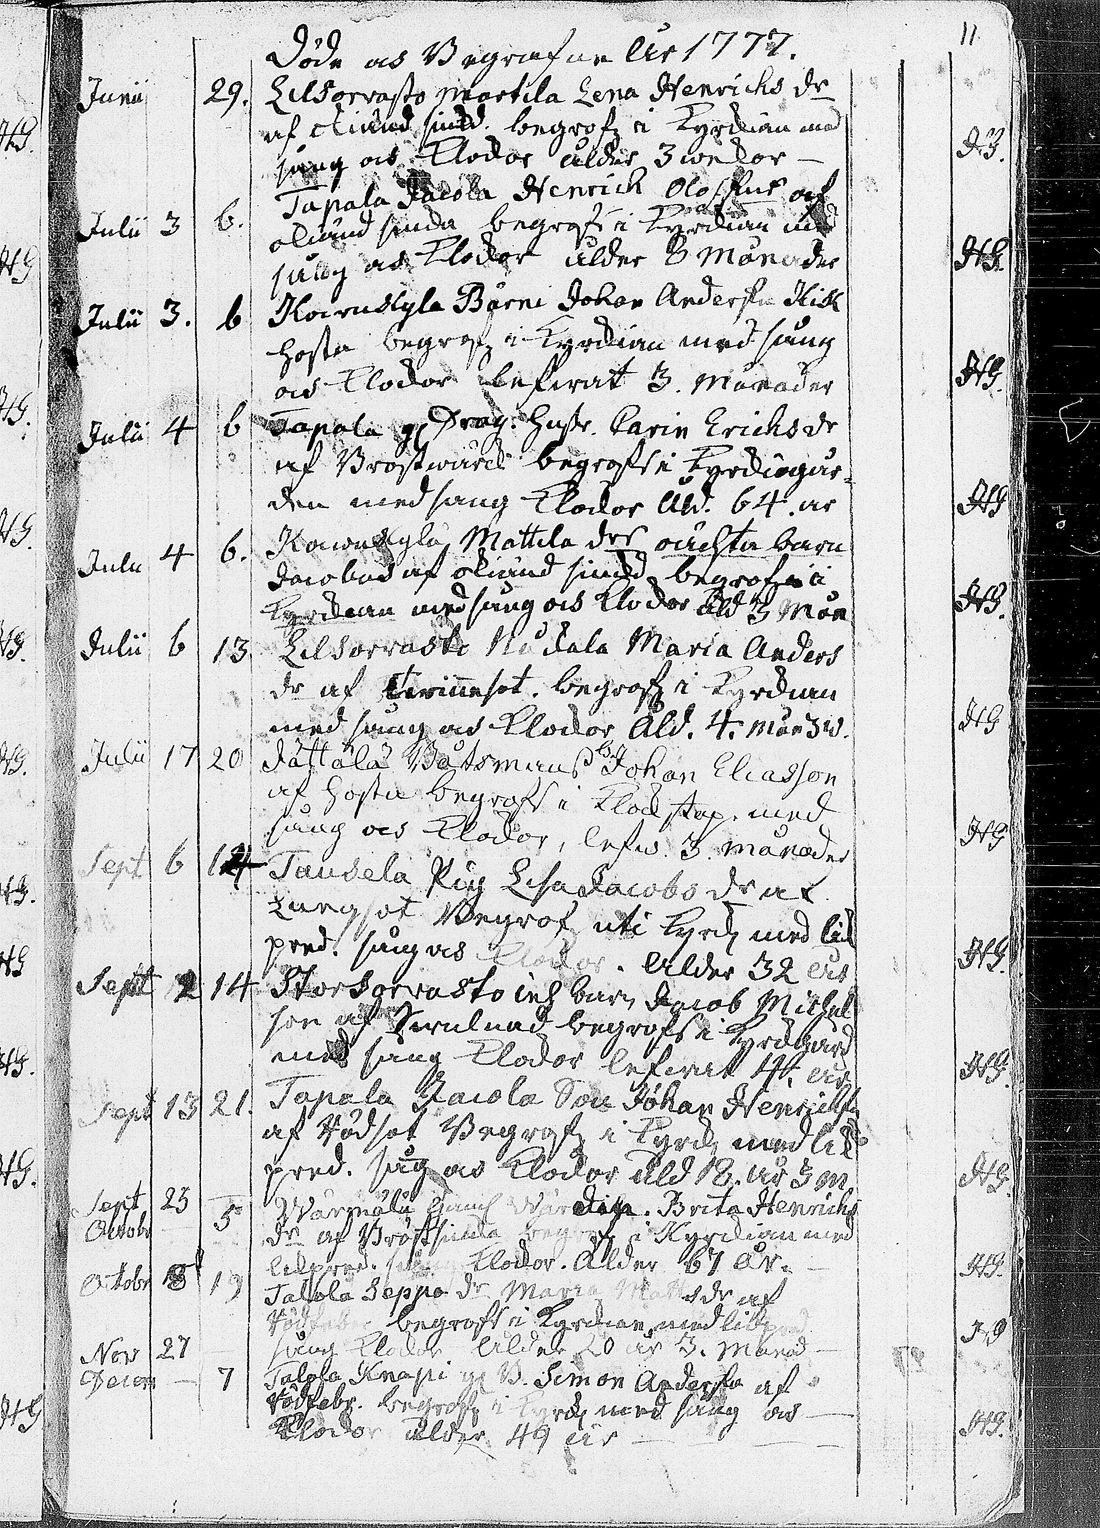 11
Döde os Begrafne År 1777.
Junii 29. Lilsorrasto Martila Lena Henrichs dr
af okiänd siukd. begrofz i Kyrckian med
sång os Klockor ålder 3 wekor
Julii 3 6. Tapala Jacola Henrich Olofsens af
okiänd siuda begrofs i Kyrckian med
sång os Klockor ålder 3 Månader
Julii 3. 6 Kaurukyla Bärni Johan Andersn Kik
hosta begrofz i Kyrckian med sång
os Klockor lefwat 3. Månader
Julii 4 6 Tapala gl Drag. Hustr. Carin Erichs dr
af Bröstwärck begrofs i Kyrckiogår-
den med sang Klockor Åld. 64. år
Julii 4 6. Mattila drs oächta barn
Jacobus af okiänd siukd begrofz i
Kyrckian med sång os Klockor åld 3 Mån
Julii 6 13 Lilsorrasto Maria Anders
dr af begrofz i Kyrckian
med sång os Klockor Åld. 4. mån 3 w.
Julii 17 20 Båtsmans Johan Eliasson
af hosta begrofs i Klockstap. med
sång os Klockor, lefw. 3. Månader
Sept 6 14 Tausela Pig Lisa Jacobs dr af
Lungsot Begrof. uti Kyrck med lik
pred. sång os Klockor. Ålder 32 år
Sept 2 14 Storsorrasto inh barn Jacob Michel
son af begrofs i Kyrckogård
med sång Klockor lefwat 4. år
Sept 13 21. Tapala Jacola Son Johan Henrichsn
af Rödsot Begrofz i Kyrck med lik
pred. sång os Klockor åld 18. år 3 m.
Sept 25
Octobr 5 Wärmälä Brita Henrichs
dr af Bröstsiuka begrof i Kyrckian med
likpred. sång Klockor. Ålder 67 År.
Octobr 8 19 Talola Seppo dr Maria Matts dr af
Rödfeber begrofs i Kyrckian med likpred
sång Klockor Ålder 20 år 3. Månad
Nov 27
Decem 7 Talola Knapi gl B. Simon Andersn af
Rödfebr. begrofz i Kyrck med sång os
Klockor ålder 49 år
HG.
HG.
HG.
HG
HG.
HG
HG
HG.
HG.
HG.
HG.
HG
HG.